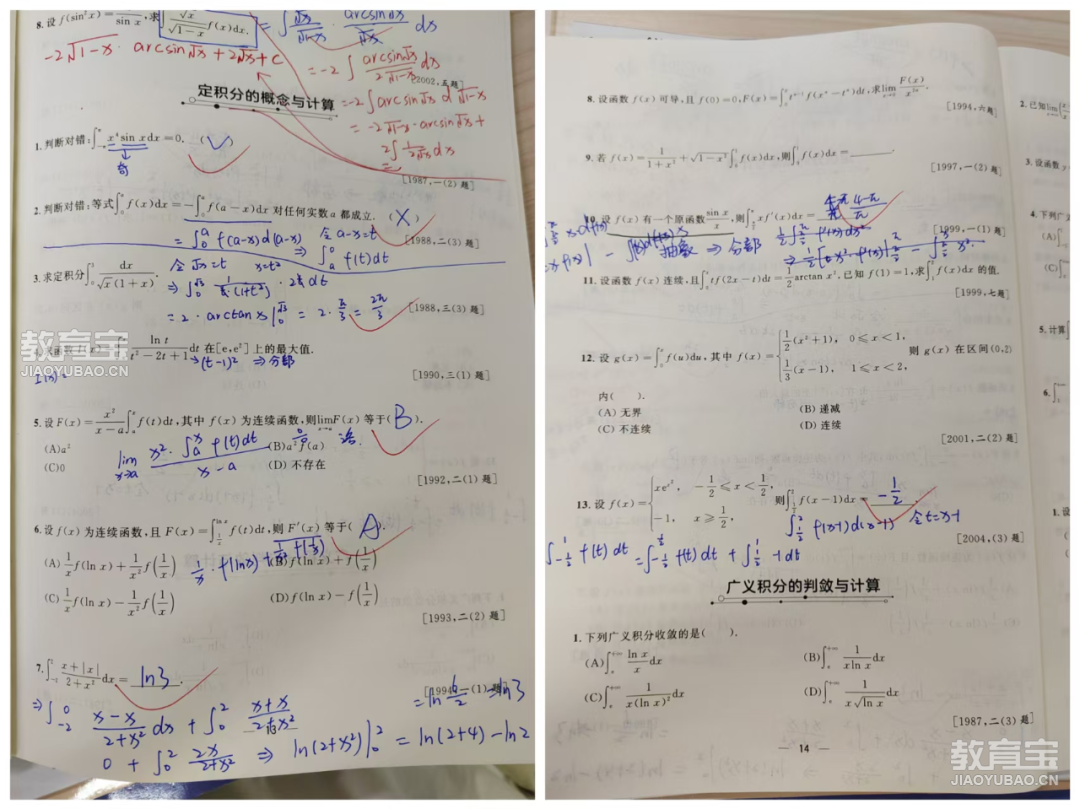 8. 设 f(sin²x) = x/sin x, 求 ∫ √x/√(1-x) f(x)dx.
= ∫ √x/√(1-x) · arcsin√x/√x dx
-2√(1-x) · arcsin√x + 2√x + C
= -2 ∫ arcsin√x/2√(1-x) dx
[2002,五题]
= -2 ∫ arcsin√x d√(1-x)
定积分的概念与计算
= -2√(1-x) · arcsin√x +
2∫ 1/2√x dx
1. 判断对错: ∫ x⁴ sin x dx = 0. (√)
奇
[1987,一(2)题]
2. 判断对错: 等式∫₀ᵃ f(x)dx = -∫₀ᵃ f(a-x)dx 对任何实数 a 都成立. (X)
= ∫₀ᵃ f(a-x)d(a-x) 令 a-x=t
[1988,二(3)题]
⇒ ∫ₐ⁰ f(t)dt
3. 求定积分∫ dx/√x(1+x).
令√x=t x=t²
⇒ ∫₀^√3 1/t·(1+t²) · 2t dt
= 2 · arctan x |₀^√3 = 2 · π/3 = 2π/3
[1988,三(3)题]
ln t/(t²-2t+1) dt 在[e,e²]上的最大值.
→(t-1)² ⇒分部
[1990,三(1)题]
5. 设 F(x) = x²/(x-a) ∫ₐˣ f(t)dt, 其中 f(x) 为连续函数, 则 lim F(x) 等于( B ).
(A) a² (B) a²f(a)
(C) 0 (D) 不存在
lim x→a x² · ∫ₐˣ f(t)dt / x-a
0/0 洛
[1992,二(1)题]
6. 设 f(x) 为连续函数, 且 F(x) = ∫_{1/x}^{ln x} f(t)dt, 则 F′(x) 等于( A ).
(A) 1/x f(ln x) + 1/x² f(1/x) (B) f(ln x) + f(1/x)
1/x · f(lnx) + 1/x² f(1/x)
(C) 1/x f(ln x) - 1/x² f(1/x) (D) f(ln x) - f(1/x)
[1993,二(2)题]
7. ∫₋₂² (x+|x|)/(2+x²) dx = ln3 .
[1994,一(1)题]
⇒ ∫₋₂⁰ (x-x)/(2+x²) dx + ∫₀² (x+x)/(2+x²)
= ln 6/2 = ln3
13
0 + ∫₀² 2x/(2+x²) ⇒ ln(2+x²)|₀² = ln(2+4) - ln2
8. 设函数 f(x) 可导, 且 f(0)=0, F(x) = ∫₀ˣ tⁿ⁻¹ f(xⁿ-tⁿ)dt, 求 lim x→0 F(x)/x²ⁿ.
[1994,六题]
9. 若 f(x) = 1/(1+x²) + √(1-x²) ∫₀¹ f(x)dx, 则∫₀¹ f(x)dx = ______.
[1997,一(2)题]
10. 设 f(x) 有一个原函数 sin x/x, 则∫ x f′(x)dx =
4-π/π
[1999,一(1)题]
抽象 ⇒ 分部
11. 设函数 f(x) 连续, 且∫₀ˣ tf(2x-t)dt = 1/2 arctan x², 已知 f(1)=1, 求∫₁² f(x)dx 的值.
[1999,七题]
12. 设 g(x) = ∫₀ˣ f(u)du, 其中 f(x) = { 1/2(x²+1), 0≤x<1, 1/3(x-1), 1≤x<2, 则 g(x) 在区间(0,2)
内( ).
(A) 无界 (B) 递减
(C) 不连续 (D) 连续
[2001,二(2)题]
13. 设 f(x) = { xe^{x²}, -1/2≤x<1/2, -1, x≥1/2, 则∫_{1/2}^2 f(x-1)dx = -1/2 .
∫_{1/2}^2 f(x-1)d(x-1) 令t=x-1
[2004,(3)题]
∫_{-1/2}^1 f(t)dt = ∫_{-1/2}^{1/2} f(t)dt + ∫_{1/2}^1 -1dt
广义积分的判敛与计算
1. 下列广义积分收敛的是( ).
(A) ∫ₑ^{+∞} ln x/x dx (B) ∫ₑ^{+∞} 1/(x ln x) dx
(C) ∫ₑ^{+∞} 1/(x(ln x)²) dx (D) ∫ₑ^{+∞} 1/(x√(ln x)) dx
[1987,二(3)题]
— 14 —
2. 已知lim
3. 设函数
4. 下列广
(A)
(C)
5. 计算
6.
1. 设
教育宝
JIAOYUBAO.CN
教育宝
JIAOYUBAO.CN